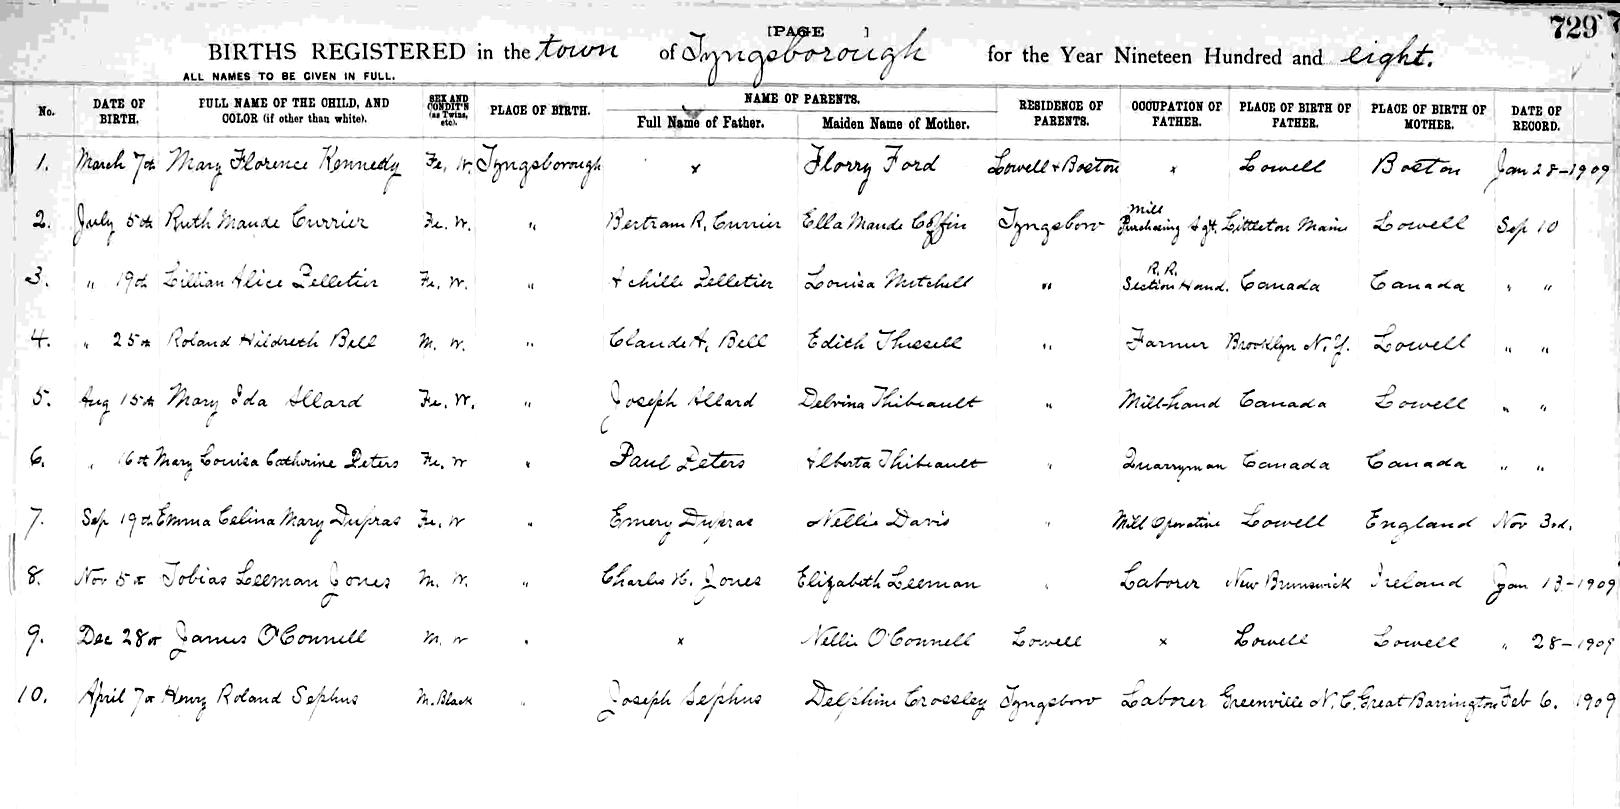 [PAGE ] 729
BIRTHS REGISTERED in the town of Tyngsborough for the Year Nineteen Hundred and eight.
ALL NAMES TO BE GIVEN IN FULL.
No. DATE OF BIRTH. FULL NAME OF THE CHILD, AND COLOR (if other than white). SEX AND CONDIT'N (as Twins, etc). PLACE OF BIRTH. NAME OF PARENTS. Full Name of Father. Maiden Name of Mother. RESIDENCE OF PARENTS. OCCUPATION OF FATHER. PLACE OF BIRTH OF FATHER. PLACE OF BIRTH OF MOTHER. DATE OF RECORD.
1. March 7th Mary Florence Kennedy Fe, W. Tyngsborough x Florry Ford Lowell + Boston x Lowell Boston Jan 28-1909
2. July 5th Ruth Maude Currier Fe. W. " Bertram R. Currier Ella Maude Coffin Tyngsboro Mill Purchasing Agt. Littleton Maine Lowell Sep 10
3. " 19th Lillian Alice Pelletier Fe. W. " Achille Pelletier Louisa Mitchell " R. R. Section Hand. Canada Canada " "
4. " 25th Roland Hildreth Bell M. W. " Claude A. Bell Edith Thissell " Farmer Brooklyn N.Y. Lowell " "
5. Aug 15th Mary Ida Allard Fe. W. " Joseph Allard Delvina Thibeault " Mill-hand Canada Lowell " "
6. " 16th Mary Louisa Catherine Peters Fe. W " Paul Peters Alberta Thibeault " Quarryman Canada Canada " "
7. Sep 19th Emma Celina Mary Dupras Fe. W " Emery Dupras Nellie Davis " Mill Operative Lowell England Nov 3rd.
8. Nov 5th Tobias Leeman Jones M. W. " Charles H. Jones Elizabeth Leeman " Laborer New Brunswick Ireland Jan 13-1909
9. Dec 28th James O'Connell M. W " x Nellie O'Connell Lowell x Lowell Lowell " 28-1909
10. April 7th Henry Roland Sephus M. Black " Joseph Sephus Delphine Crossley Tyngsboro Laborer Greenville N.C. Great Barrington Feb 6. 1909